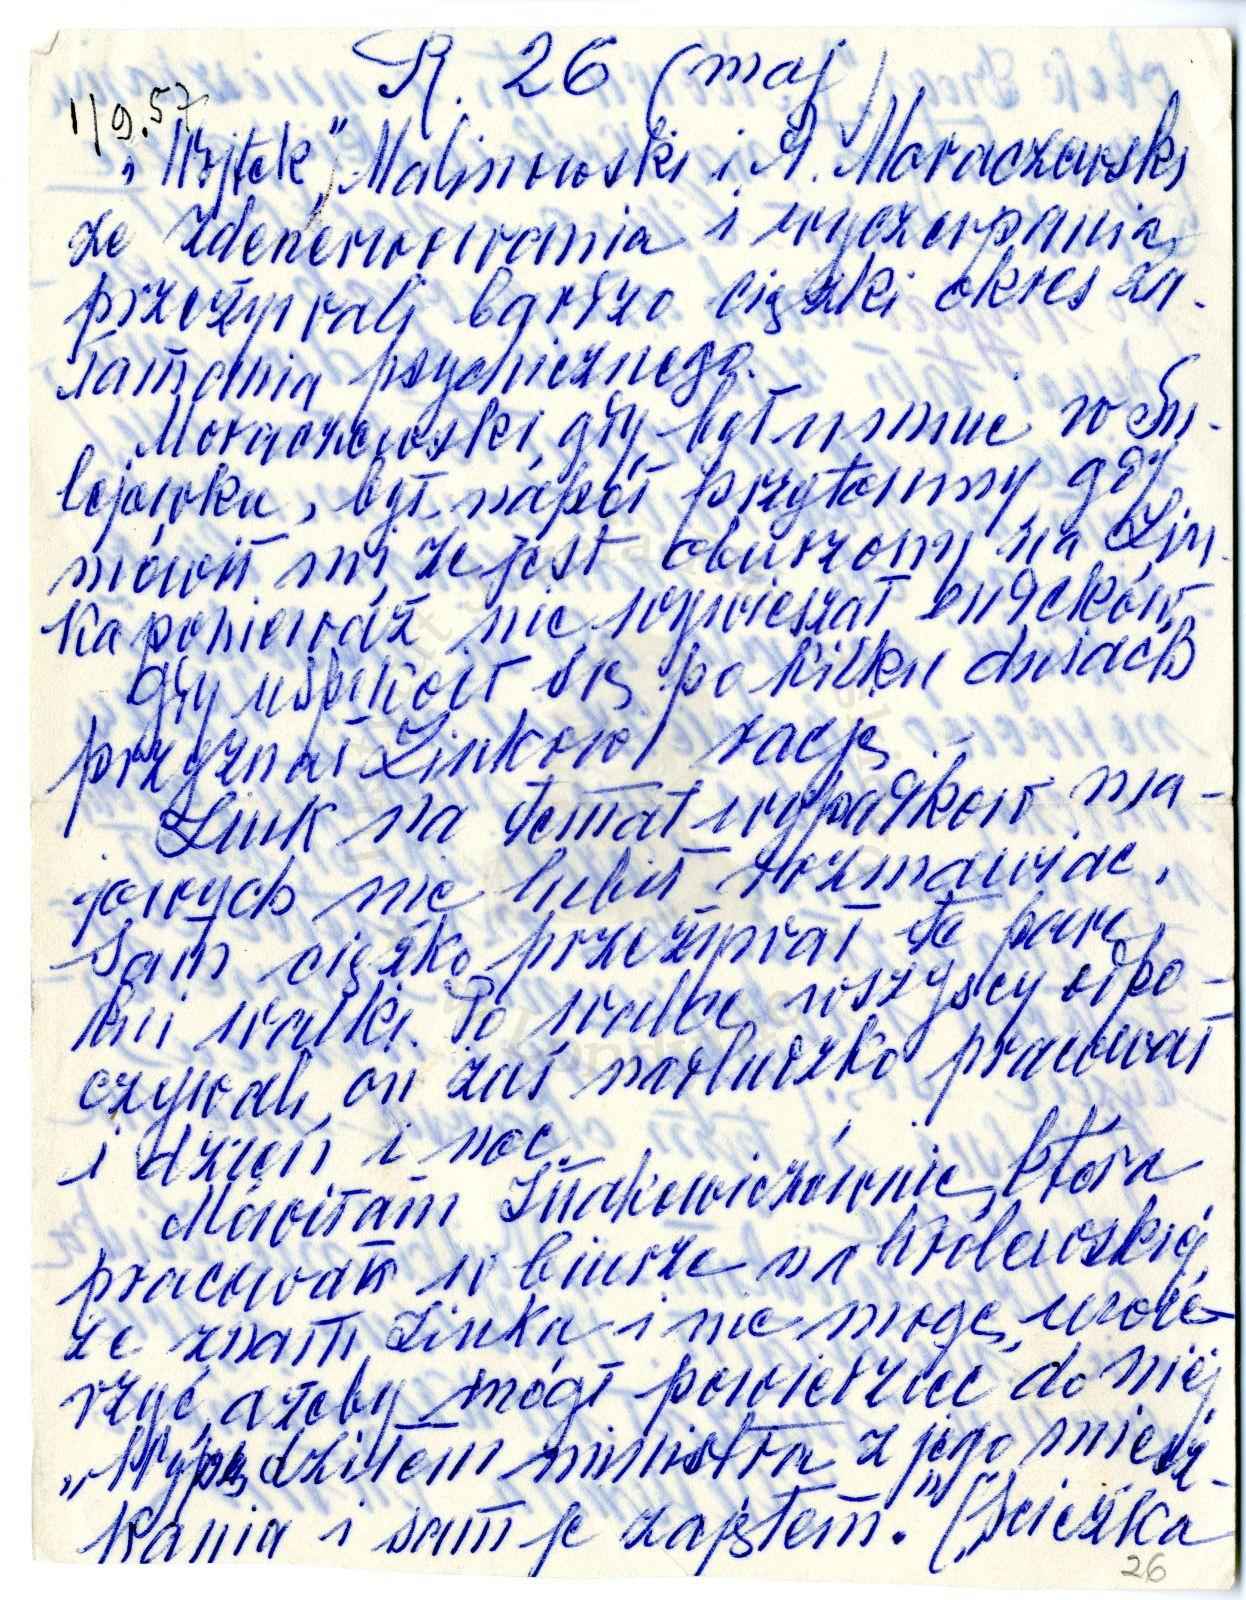 R. 26 (maj)
1/9.57
"Wojtek" Malinowski i J. Moraczewski
ze zdenerwowania i wyczerpania
przeżywali bardzo ciężki okres za-
łamania psychicznego.
Moraczewski, gdy był u mnie w Su-
lejówku, był napół przytomny gdy
mówił mi, że jest oburzony na Zin-
ka ponieważ nie wywieszał
Gdy uspokoił się po kilku dniach
przyznał Zinkowi rację.
Zink na temat wypadków ma-
jowych nie lubił rozmawiać.
Sam ciężko przeżywał te parę
dni walki. Po walce wszyscy odpo-
czywali, on zaś nadludzko pracował
i dzień i noc.
Mówiłam Żmakowiczównie, która
pracowała w biurze na Wróblewskiej,
że znam Zinka i nie mogę uwie-
rzyć, ażeby mógł powiedzieć do niej
„Wypędziłem ministra z jego miesz-
kania i sam je zająłem." (Ścieżka
26